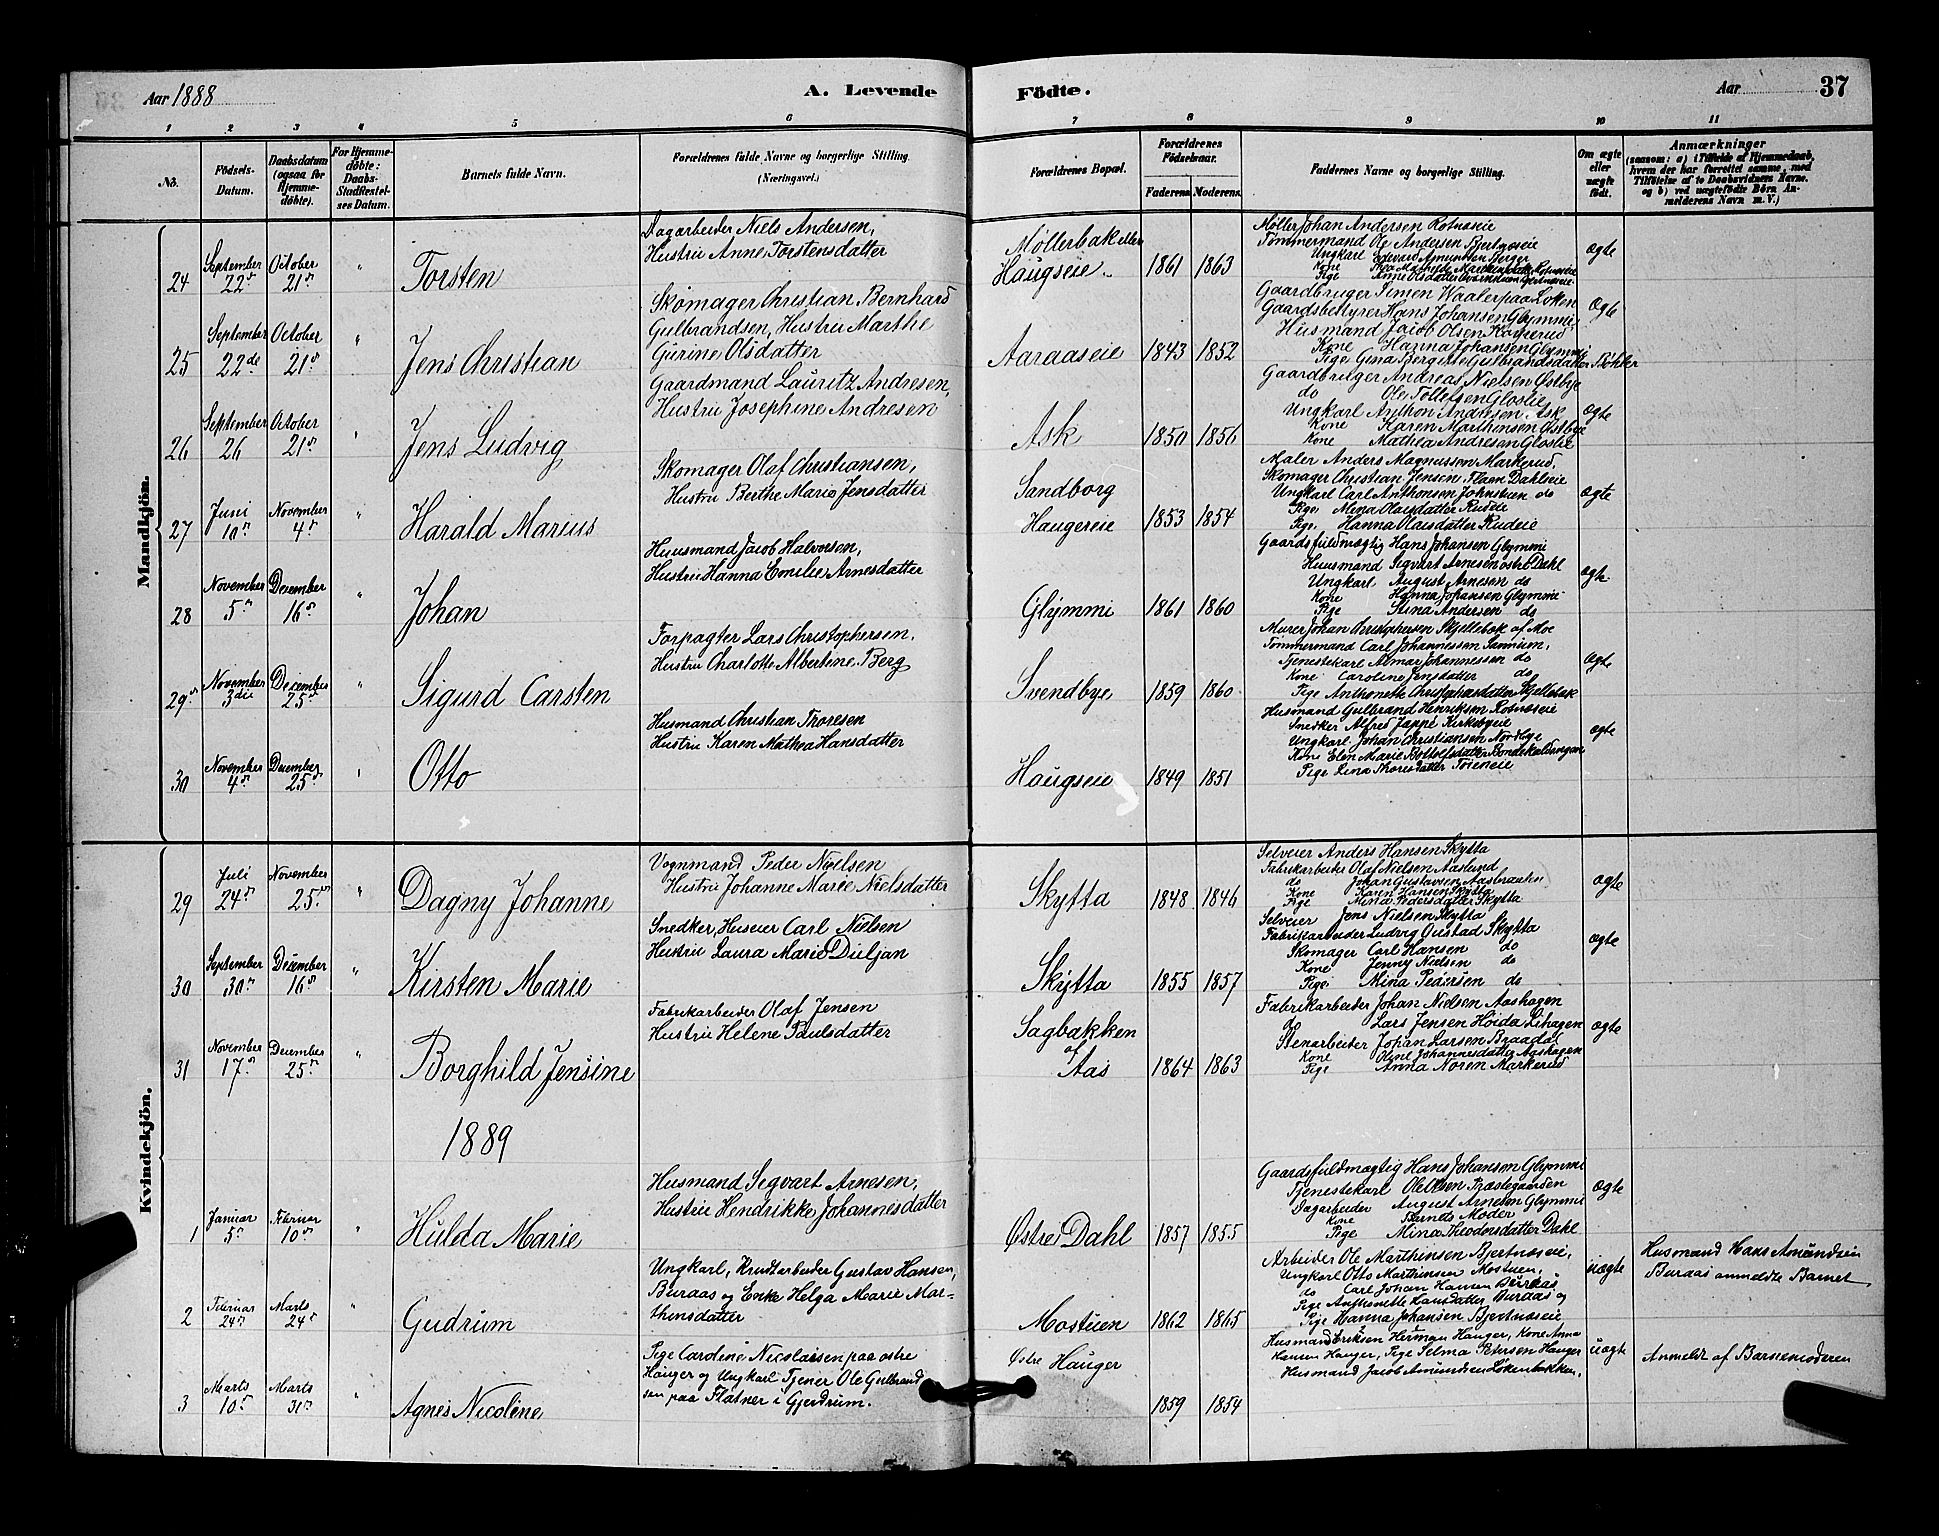 Aar 1888
A. Levende
Födte.
Aar
37
1 2 3 4 5 6 7 8 9 10 11
No.
Födsels-
Datum.
Daabsdatum
(ogsaa for
Hjemme-
döbte).
For Hjemme-
döbte:
Daabs-
Stadfæstel-
ses Datum.
Barnets fulde Navn.
Forældrenes fulde Navne og borgerlige Stilling.
(Næringsvei.)
Forældrenes Bopæl.
Forældrenes
Födselsaar.
Faderens. Moderens.
Faddernes Navne og borgerlige Stilling.
Om ægte
eller
uægte
født.
Anmærkninger
(saasom: a) i Tilfælde af Hjemmedaab,
hvem der har forrettet samme, med
Tilføielse af to Daabsvidners Navne,
og b) ved uægtefødte Börn An-
melderens Navn m. V.)
Mandkjön.
24
September
22de
October
21de
"
Torsten
Dagarbeider Niels Andersen,
Hustru Anne Torstensdatter
Møllerbak eller
Haugseie
1861 1863
Møller Johan Andersen Rotnæseie
Tømmermand Ole Andersen Bjertnæseie
Ungkarl Edevard Amundsen Berger
Kone
Pige
ægte
25
September
22de
October
21de
"
Jens Christian
Skomager Christian Bernhard
Gulbrandsen, Hustru Marthe
Gurine Olsdatter
Aaraaseie
1843 1852
Gaardbruger Simen Waaler paa Løken
Gaardsbestyrer Hans Johansen Glymmi
Husmand Jacob Olsen Kaggerud
Kone Hanna Johansen Glymmi
Pige Gina Bergitte Gulbrandsdatter Bøhler
ægte
26
September
26
October
21de
"
Jens Ludvig
Gaardmand Lauritz Andresen,
Hustru Josephine Andresen
Ask
1850 1856
Gaardbruger Andreas Nielsen Østbye
do Ole Tollefsen Gloslie
Ungkarl Anthon Andresen Ask
Kone Karen Marthinsen Østbye
Kone Mathea Andresen Gloslie
ægte
27
Juni
10de
November
4de
"
Harald Marius
Skomager Olaf Christiansen,
Hustru Berthe Marie Jensdatter
Sandborg
Haugereie
1853 1854
Maler Anders Magnussen Markerud,
Skomager Christian Jensen Flaen Dahleie
Ungkarl Carl Anthonsen Johnstuen do
Pige Mina Olausdatter Rudeie
Pige Hanna Olausdatter Rudeie
ægte
28
November
5de
December
16de
"
Johan
Huusmand Jacob Halvorsen,
Hustru Hanna Emilie Arnesdatter
Glymmi
1861 1860
Gaardsfuldmægtig Hans Johansen Glymmi
Huusmand Segvart Arnesen østre Dahl
Ungkarl August Arnesen do
Kone Hanna Johansen Glymmi
Pige Stina Andersen do
ægte
29de
November
3die
December
25de
"
Sigurd Carsten
Forpagter Lars Christophersen,
Hustru Charlotte Albertine Berg
Svendbye
1859 1860
Murer Johan Christophersen Skjellebæk af Moe
Tømmermand Carl Johannessen Sannum,
Tjenestekarl Almar Johannessen do
Kone Caroline Jensdatter do
Pige Anthonette Christophersdatter Skjellebæk
ægte
30
November
4de
December
25de
"
Otto
Husmand Christian Thoresen
Hustru Karen Mathea Hansdatter
Haugseie
1849 1851
Husmand Gulbrand Henriksen Rotnæseie
Snedker Alfred Jappe Kirkebyeie
Ungkarl Johan Christiansen Nordbye
Kone Elen Marie
Pige Lina Thoresdatter Toieneie
ægte
Kvindekjön.
29
Juli
24de
November
25de
"
Dagny Johanne
Vognmand Peder Nielsen
Hustru Johanne Marie Nielsdatter
Skytta
1848 1846
Selveier Anders Hansen Skytta
Fabrikarbeider Olaf Nielsen Aaslund
do Johan Gustavsen Aasbraaten
Kone Karen Hansen Skytta
Pige Mina Pedersdatter Skytta
ægte
30
September
30de
December
16de
"
Kirsten Marie
Snedker, Huseier Carl Nielsen
Hustru Laura Marie Duljan
Skytta
1855 1857
Selveier Jens Nielsen Skytta
Fabrikarbeider Ludvig Oustad Skytta
Skomager Carl Hansen do
Kone Jenny Nielsen do
Pige Mina Pedersen do
ægte
31
November
17de
December
25de
"
Borghild Jensine
Fabrikarbeider Olaf Jensen
Hustru Helene Paulsdatter
Sagbakken
af
Aas
1864 1863
Fabrikarbeider Johan Nielsen Aashagen
do Lars Jensen Høida Lihagen
Stenarbeider Johan Larsen Braadal
Kone Oline Johannesdatter Aashagen
Pige Anna Noren Markerud
ægte
1889
1
Januar
5de
Februar
10de
"
Hulda Marie
Husmand Segvart Arnesen,
Hustru Hendrikke Johannesdatter
Østre Dahl
1857 1855
Gaardsfuldmægtig Hans Johansen Glymmi
Tjenestekarl Ole Olsen Præstegaarden
Dagarbeider August Arnesen Glymmi
Kone Barnets Moder
Pige Mina Theodorsdatter Dahl
ægte
2
Februar
24de
Marts
24de
"
Gudrum
Ungkarl, Krudtarbeider Gustav Hansen,
Buraas og Enke Helga Marie Mar-
thinsdatter
Mostuen
1862 1865
Arbeider Ole Marthinsen Bjertnæseie,
Ungkarl Otto Marthinsen Mostuen,
do Carl Johan Hansen Buraas
Pige Anthonette Hansdatter Buraas og
Pige Hanna Johansen Bjertnæseie
uægte
Husmand Hans Amundsen
Buraas anmeldte Barnet
3
Marts
10de
Marts
31te
"
Agnes Nicoline
Pige Caroline Nicolaisen paa østre
Hauger og Ungkarl Tjener Ole Gulbrand
sen paa Flatner i Gjerdrum.
Østre Hauger
1859 1854
Husmand Eriksen Herman Hauger, Kone Anna
Hansen Hauger, Pige Selma Petersen Hauger
Husmand Jacob Amundsen Løkenbakken.
uægte
Anmeldt af Barnemoderen